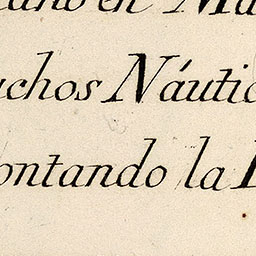 en
chos Náutic
ontando la